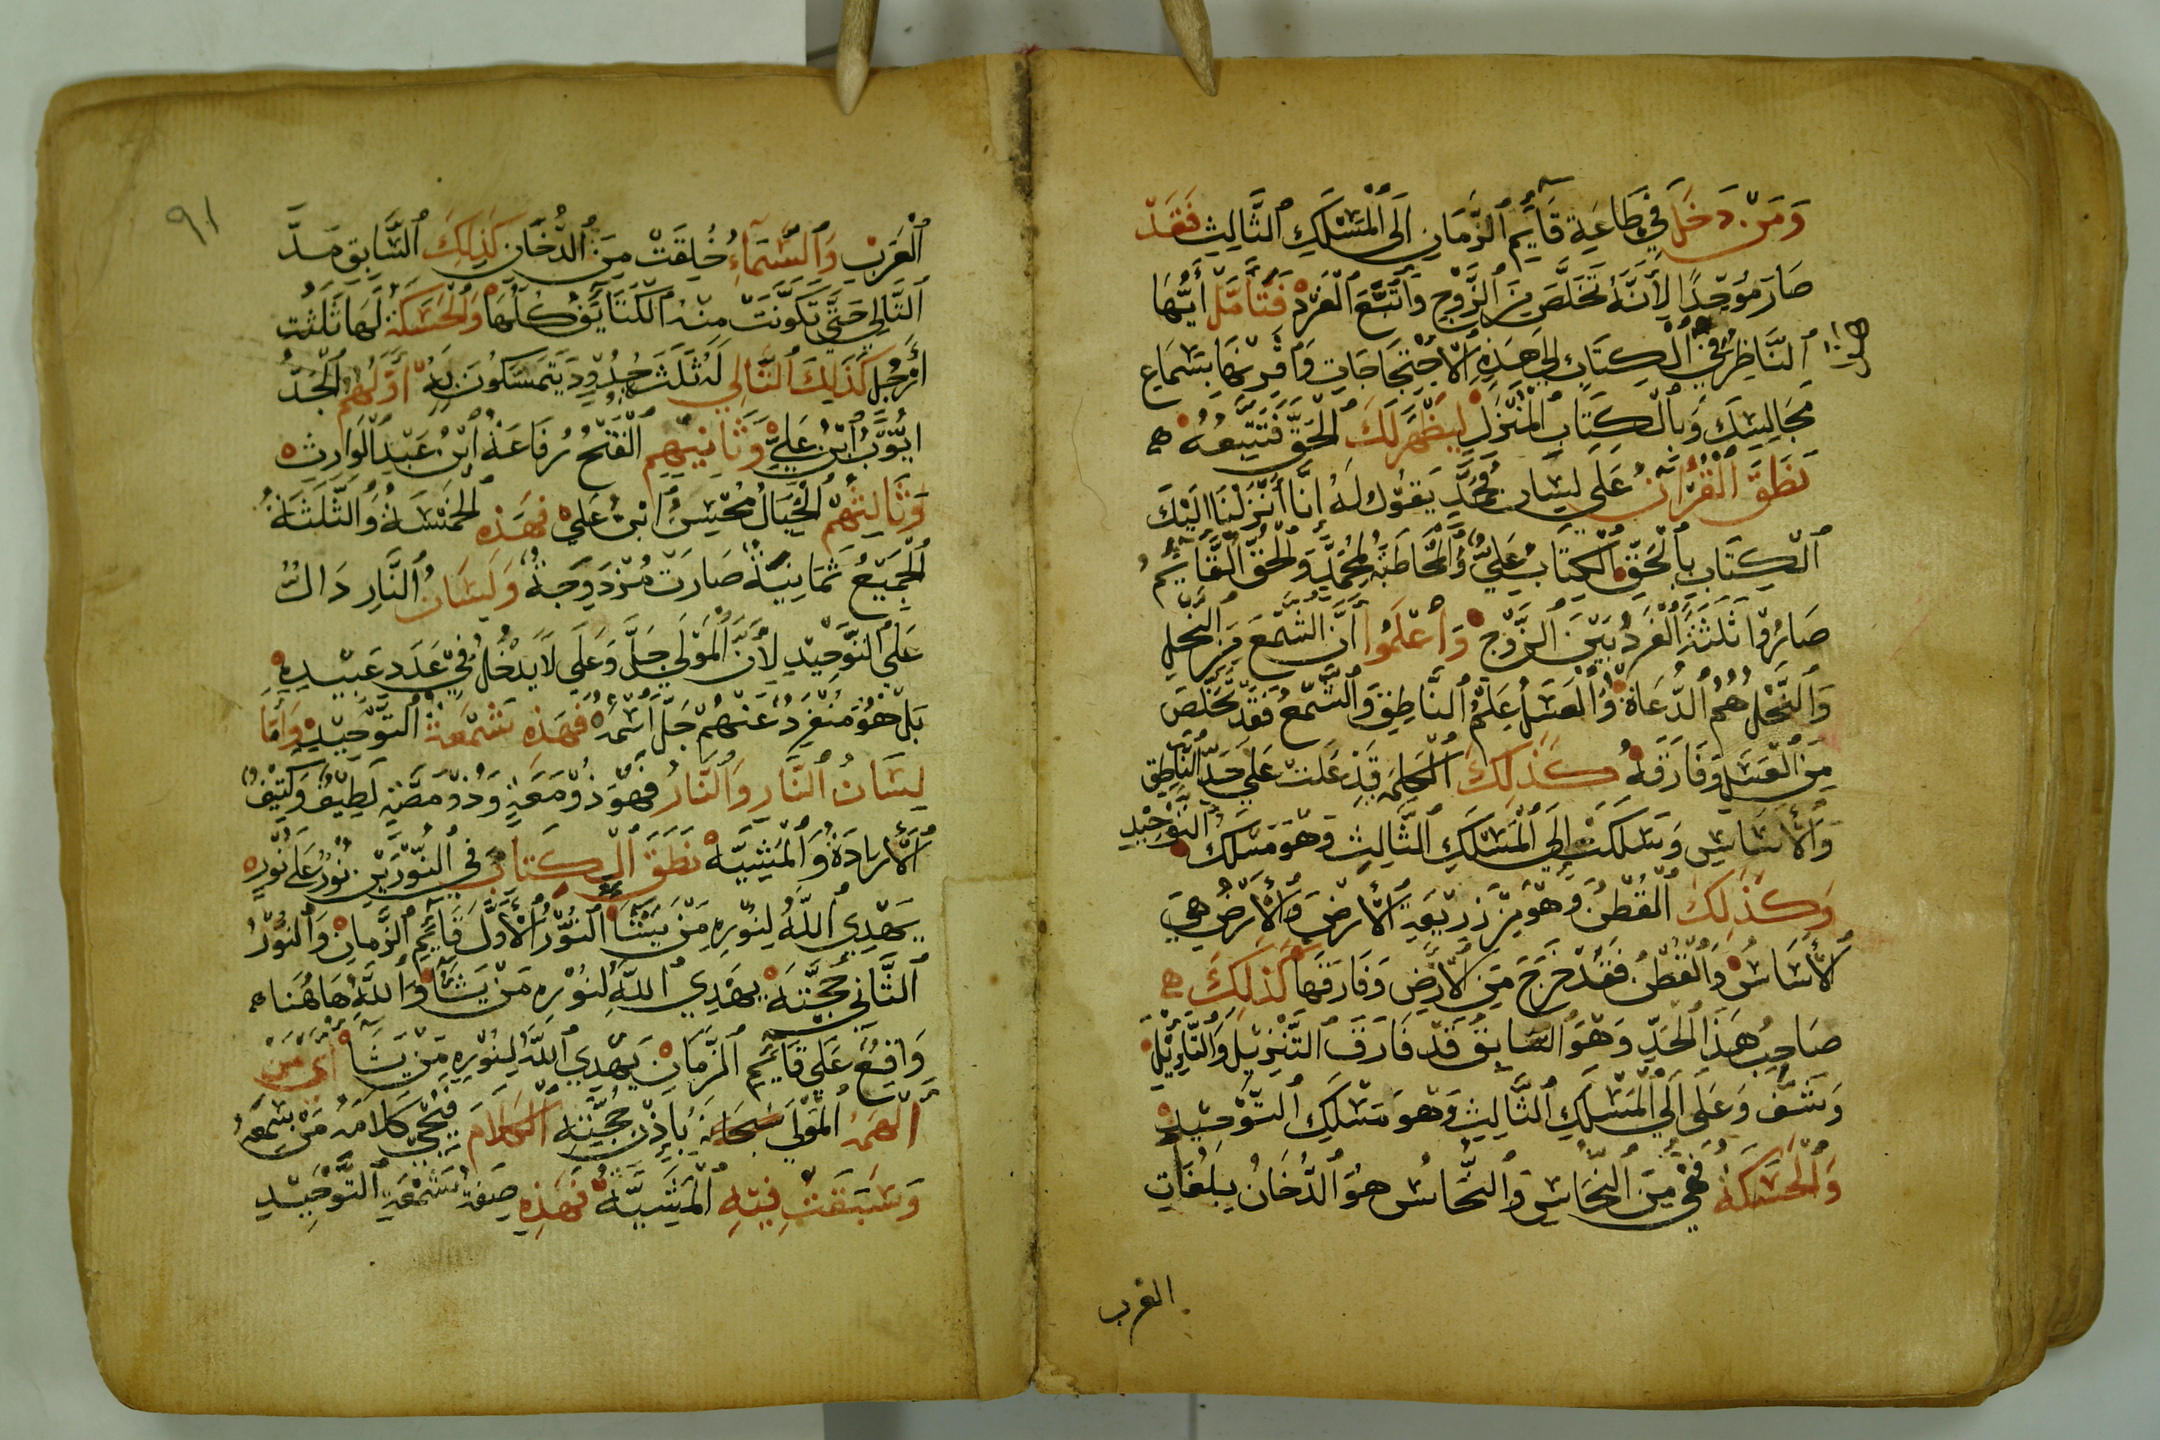 وَمَنْ دَخَلَ فِي طَاعَةِ قَآيِمِ ٱلزَّمَانِ اِلَى ٱلْمَسْلَكِ ٱلثَّالِثِ فَقَدْ
صَارَ مُوَحِّدًا لِأَنَّهُ تَخَلَّصَ مِنَ ٱلزَّوْجِ وَٱتَّبَعَ ٱلْفَرْدَ فَتَأَمَّلْ أَيُّهَا
ٱلنَّاظِرُ فِي ٱلْكِتَابِ اِلَى هَذِهِ ٱلْاِحْتِجَاجَاتِ وَٱقْرِنْهَا بِسَمَاعِ
مَجَالِسِكَ وَبِالْكِتَابِ ٱلْمُنْزَلِ لِيَظْهَرَ لَكَ ٱلْحَقُّ فَتَتَّبِعُهُ
نَطَقَ ٱلْقُرْآنُ عَلَى لِسَانِ مُحَمَّدٍ يَقُولُ لَهُ اِنَّا أَنْزَلْنَا اِلَيْكَ
ٱلْكِتَابَ بِٱلْحَقِّ وَٱلْكِتَابُ عَلِيٌّ وَٱلْمُخَاطَبَةُ لِمُحَمَّدٍ وَٱلْحَقُّ ٱلْقَآيِمُ
صَارُوا ثَلَثَةً ٱلْفَرْدُ بَيْنَ ٱلزَّوْجِ وَٱعْلَمُوا أَنَّ ٱلشَّمْعَ مِنَ ٱلنَّحْلِ
وَٱلنَّحْلُ هُمُ ٱلدُّعَاةُ وَٱلْعَسَلُ عِلْمُ ٱلنَّاطِقِ وَٱلشَّمْعُ فَقَدْ تَخَلَّصَ
مِنَ ٱلْعَسَلِ وَفَارَقَهُ كَذَلِكَ ٱلْكَلِمَةُ قَدْ عَلَتْ عَلَى حَدِّ ٱلنَّاطِقِ
وَٱلْأَسَاسِ وَسَلَكَتْ اِلَى ٱلْمَسْلَكِ ٱلثَّالِثِ وَهُوَ مَسْلَكُ ٱلتَّوْحِيدِ
وَكَذَلِكَ ٱلْقُطْنُ وَهُوَ مِنْ زَرِيعَةِ ٱلْأَرْضِ وَٱلْأَرْضُ هِيَ
ٱلْأَسَاسُ وَٱلْقُطْنُ فَقَدْ خَرَجَ مِنَ ٱلْأَرْضِ وَفَارَقَهَا كَذَلِكَ
صَاحِبُ هَذَا ٱلْحَدِّ وَهُوَ ٱلسَّابِقُ قَدْ فَارَقَ ٱلتَّنْزِيلَ وَٱلتَّاوِيلَ
وَشَفَّ وَعَلَى اِلَى ٱلْمَسْلَكِ ٱلثَّالِثِ وَهُوَ مَسْلَكُ ٱلتَّوْحِيدِ
وَٱلْحَسَكَةُ فَهِيَ مِنَ ٱلنُّحَاسِ وَٱلنُّحَاسُ هُوَ ٱلدُّخَانُ بِلُغَاتِ
العرب
٩١
ٱلْعَرَبِ وَٱلسَّمَآءُ خُلِقَتْ مِنَ ٱلدُّخَانِ كَذَلِكَ ٱلسَّابِقُ مَدَّ
ٱلتَّالِي حَتَّى تَكَوَّنَتْ مِنْهُ ٱلْكَثَايِفُ كُلُّهَا وَٱلْحَسَكَةُ لَهَا ثَلَثَتُ
أَرْجُلٍ كَذَلِكَ ٱلتَّالِي لَهُ ثَلَثُ حُدُودٍ يَتَمَسَّكُونَ بِهِ أَوَّلُهُمُ ٱلْجَدُّ
أَيُّوبُ ٱبْنُ عَلِيٍّ وَثَانِيهِمِ ٱلْفَتْحُ رُفَاعَةُ ٱبْنُ عَبْدِ ٱلْوَارِثِ
وَثَالِثُهُمُ ٱلْخَيَالُ مُحْسِنُ ٱبْنُ عَلِيٍّ فَهَذِهِ ٱلْخَمْسَةُ وَٱلثَّلَثَةُ
ٱلْجَمِيعُ ثَمَانِيَةٌ صَارَتْ مُزْدَوِجَةً وَلِسَانُ ٱلنَّارِ دَالٌّ
عَلَى ٱلتَّوْحِيدِ لِأَنَّ ٱلْمَوْلَى جَلَّ وَعَلَى لَا يَدْخُلُ فِي عَدَدِ عَبِيدِهِ
بَلْ هُوَ مُنْفَرِدٌ عَنْهُمْ جَلَّ ٱسْمُهُ فَهَذِهِ شَمْعَةُ ٱلتَّوْحِيدِ وَأَمَّا
لِسَانُ ٱلنَّارِ وَٱلنَّارُ فَهُوَ ذُو مَعَةٍ وَذُو مَصَّةٍ لَطِيفٌ وَكَثِيفٌ
ٱلْأِرَادَةُ وَٱلْمَشِيَّةُ نَطَقَ ٱلْكِتَابُ فِي ٱلنُّورَيْنِ نُورٌ عَلَى نُورٍ
يَهْدِي ٱللَّهُ لِنُورِهِ مَنْ يَشَا ٱلنُّورُ ٱلْأَوَّلُ قَآيِمُ ٱلزَّمَانِ وَٱلنُّورُ
ٱلثَّانِي حُجَّتُهُ يَهْدِي ٱللَّهُ لِنُورِهِ مَنْ يَشَآ وَٱللَّهُ هَاهُنَا
وَاقِعٌ عَلَى قَآيِمِ ٱلزَّمَانِ يَهْدِي ٱللَّهُ لِنُورِهِ مَنْ يَشَآ أَيْ مَنْ
أَلْهَمَهُ ٱلْمَوْلَى سُبْحَانَهُ بِاِذْنِ حُجَّتِهِ ٱلْكَلَامَ فَيُحْيِي كَلَامُهُ مَنْ سَمِعَهُ
وَسَبَقَتْ فِيهِ ٱلْمَشِيَّةُ فَهَذِهِ صِفَةُ شَمْعَةِ ٱلتَّوْحِيدِ